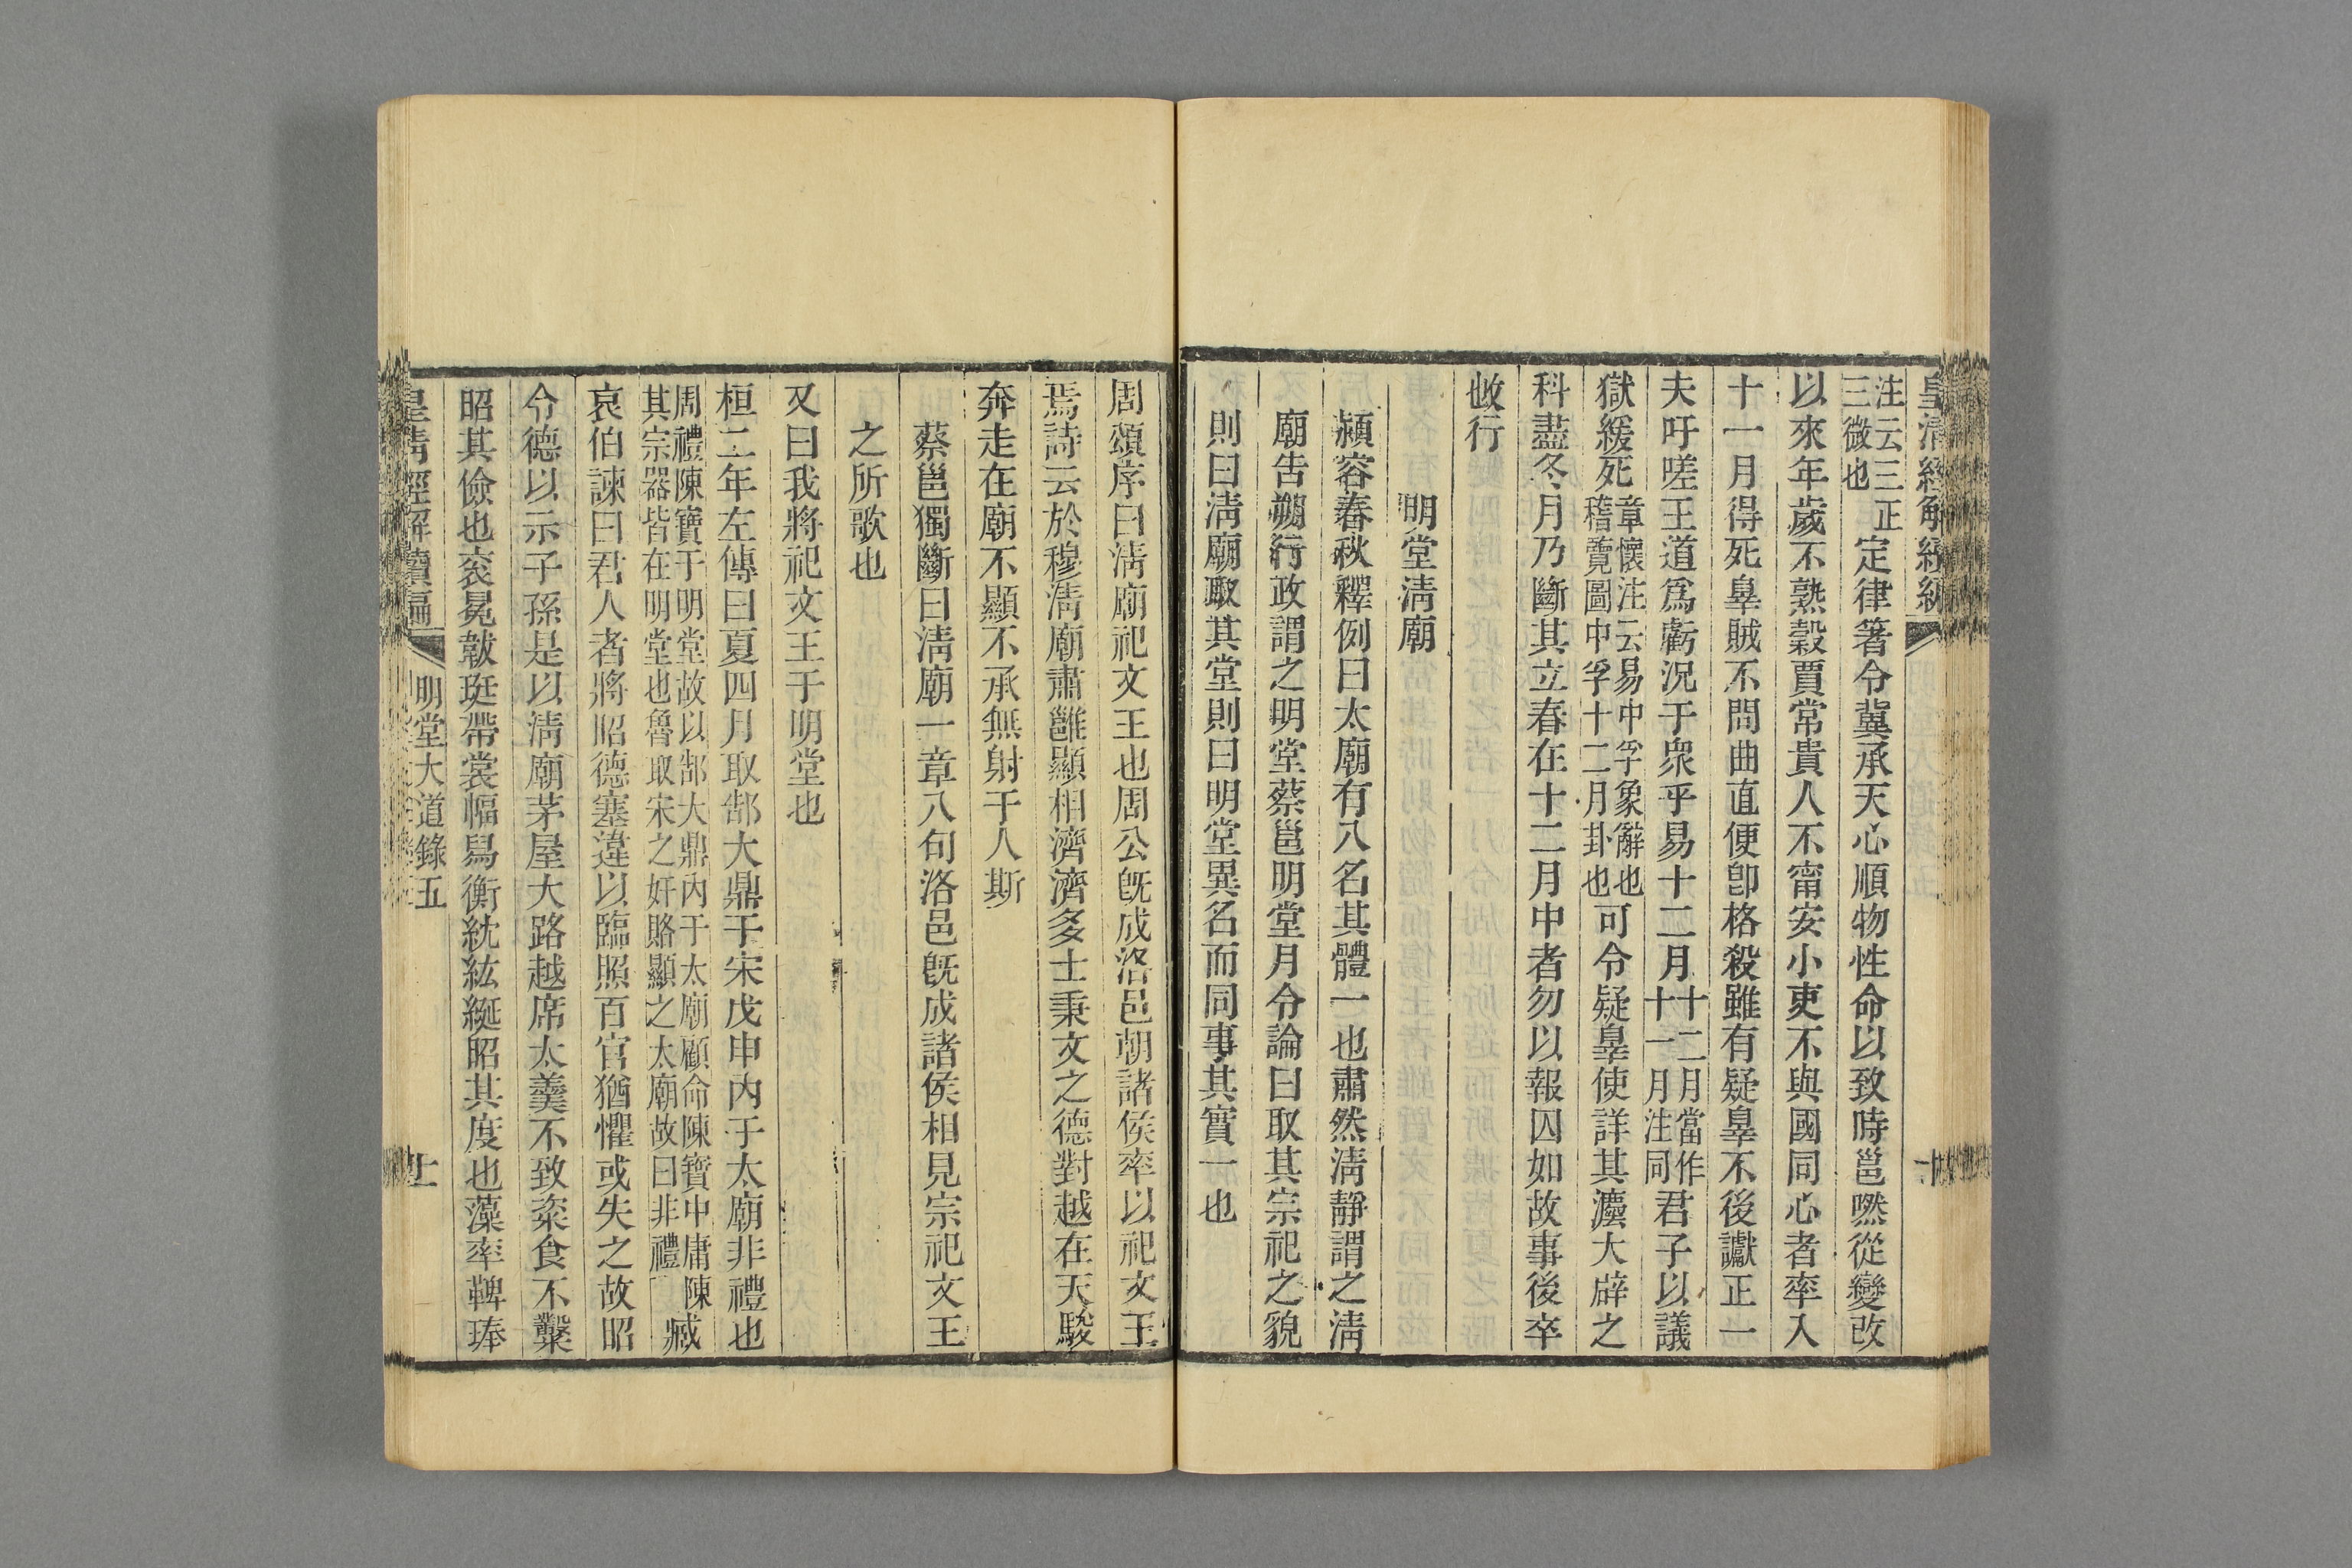 皇清經解續編
注云三正三微也定律箸令冀承天心順物性命以致時邕嘫從變改
以來年歲不熟穀賈常貴人不甯安小吏不與國同心者率入
十一月得死辠賊不問曲直便卽格殺雖有疑辠不後讞正一
夫吁嗟王道爲虧況于衆乎易十二月十二月當作十一月注同君子以議
獄緩死章懷注云易中孚象辭也稽覽圖中孚十二月卦也可令疑辠使詳其灋大辟之
科盡冬月乃斷其立春在十二月中者勿以報囚如故事後卒
㪅行
明堂淸廟
潁容春秋釋例曰太廟有八名其體一也肅然淸靜謂之淸
廟告朔行政謂之明堂蔡邕明堂月令論曰取其宗祀之貌
則曰淸廟取其堂則曰明堂異名而同事其實一也
周頌序曰淸廟祀文王也周公旣成洛邑朝諸侯率以祀文王
焉詩云於穆淸廟肅雝顯相濟濟多士秉文之德對越在天駿
奔走在廟不顯不承無射于人斯
蔡邕獨斷曰淸廟一章八句洛邑旣成諸侯相見宗祀文王
之所歌也
又曰我將祀文王于明堂也
桓二年左傳曰夏四月取郜大鼎于宋戊申內于太廟非禮也
周禮陳寶于明堂故以郜大鼎內于太廟顧命陳寶中庸陳其宗器皆在明堂也魯取宋之奸賂顯之太廟故曰非禮臧
哀伯諫曰君人者將昭德塞違以臨照百官猶懼或失之故昭
令德以示子孫是以淸廟茅屋大路越席太羹不致粢食不糳
昭其儉也衮冕黻珽帶裳幅舄衡紞紘綖昭其度也藻率鞞琫
皇清經解續編 明堂大道錄五